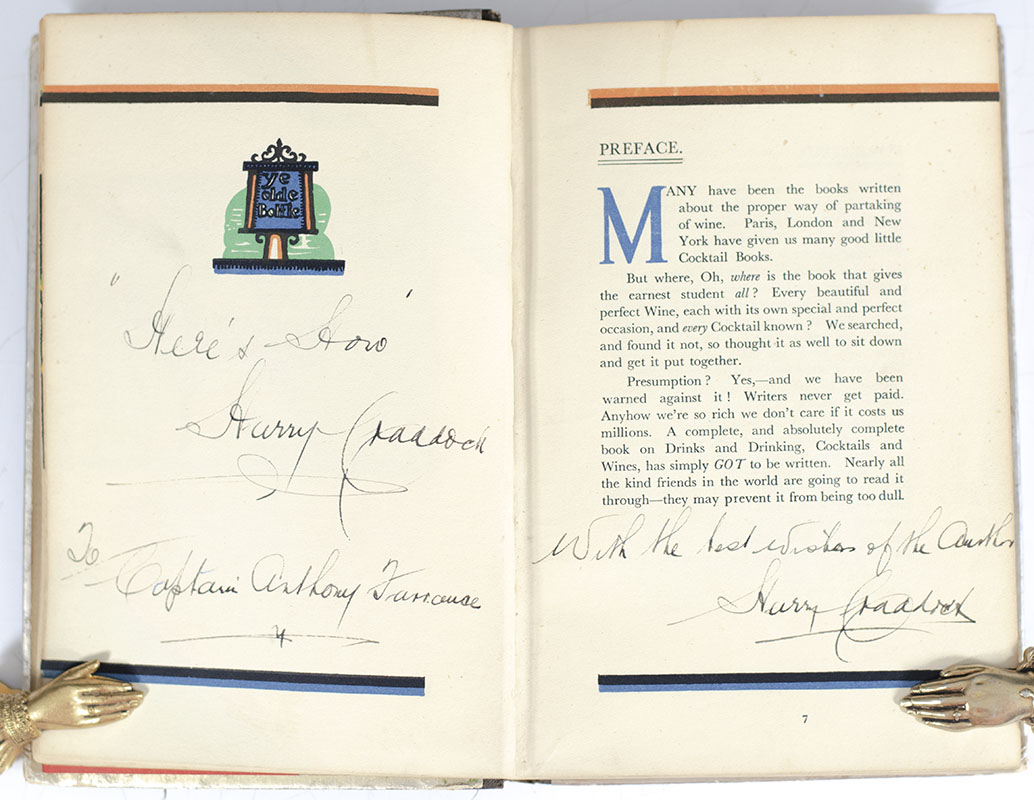 ye
olde
Bottle
"Here's How"
Harry Craddock
To
Captain Anthony
PREFACE.
MANY have been the books written
about the proper way of partaking
of wine. Paris, London and New
York have given us many good little
Cocktail Books.
But where, Oh, where is the book that gives
the earnest student all? Every beautiful and
perfect Wine, each with its own special and perfect
occasion, and every Cocktail known? We searched,
and found it not, so thought it as well to sit down
and get it put together.
Presumption? Yes,—and we have been
warned against it! Writers never get paid.
Anyhow we're so rich we don't care if it costs us
millions. A complete, and absolutely complete
book on Drinks and Drinking, Cocktails and
Wines, has simply GOT to be written. Nearly all
the kind friends in the world are going to read it
through—they may prevent it from being too dull.
With the best wishes of the Author
Harry Craddock
7